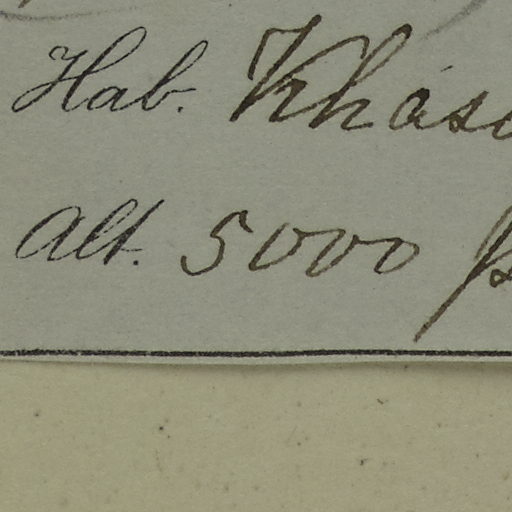 Hab. Khasi
Alt. 5000